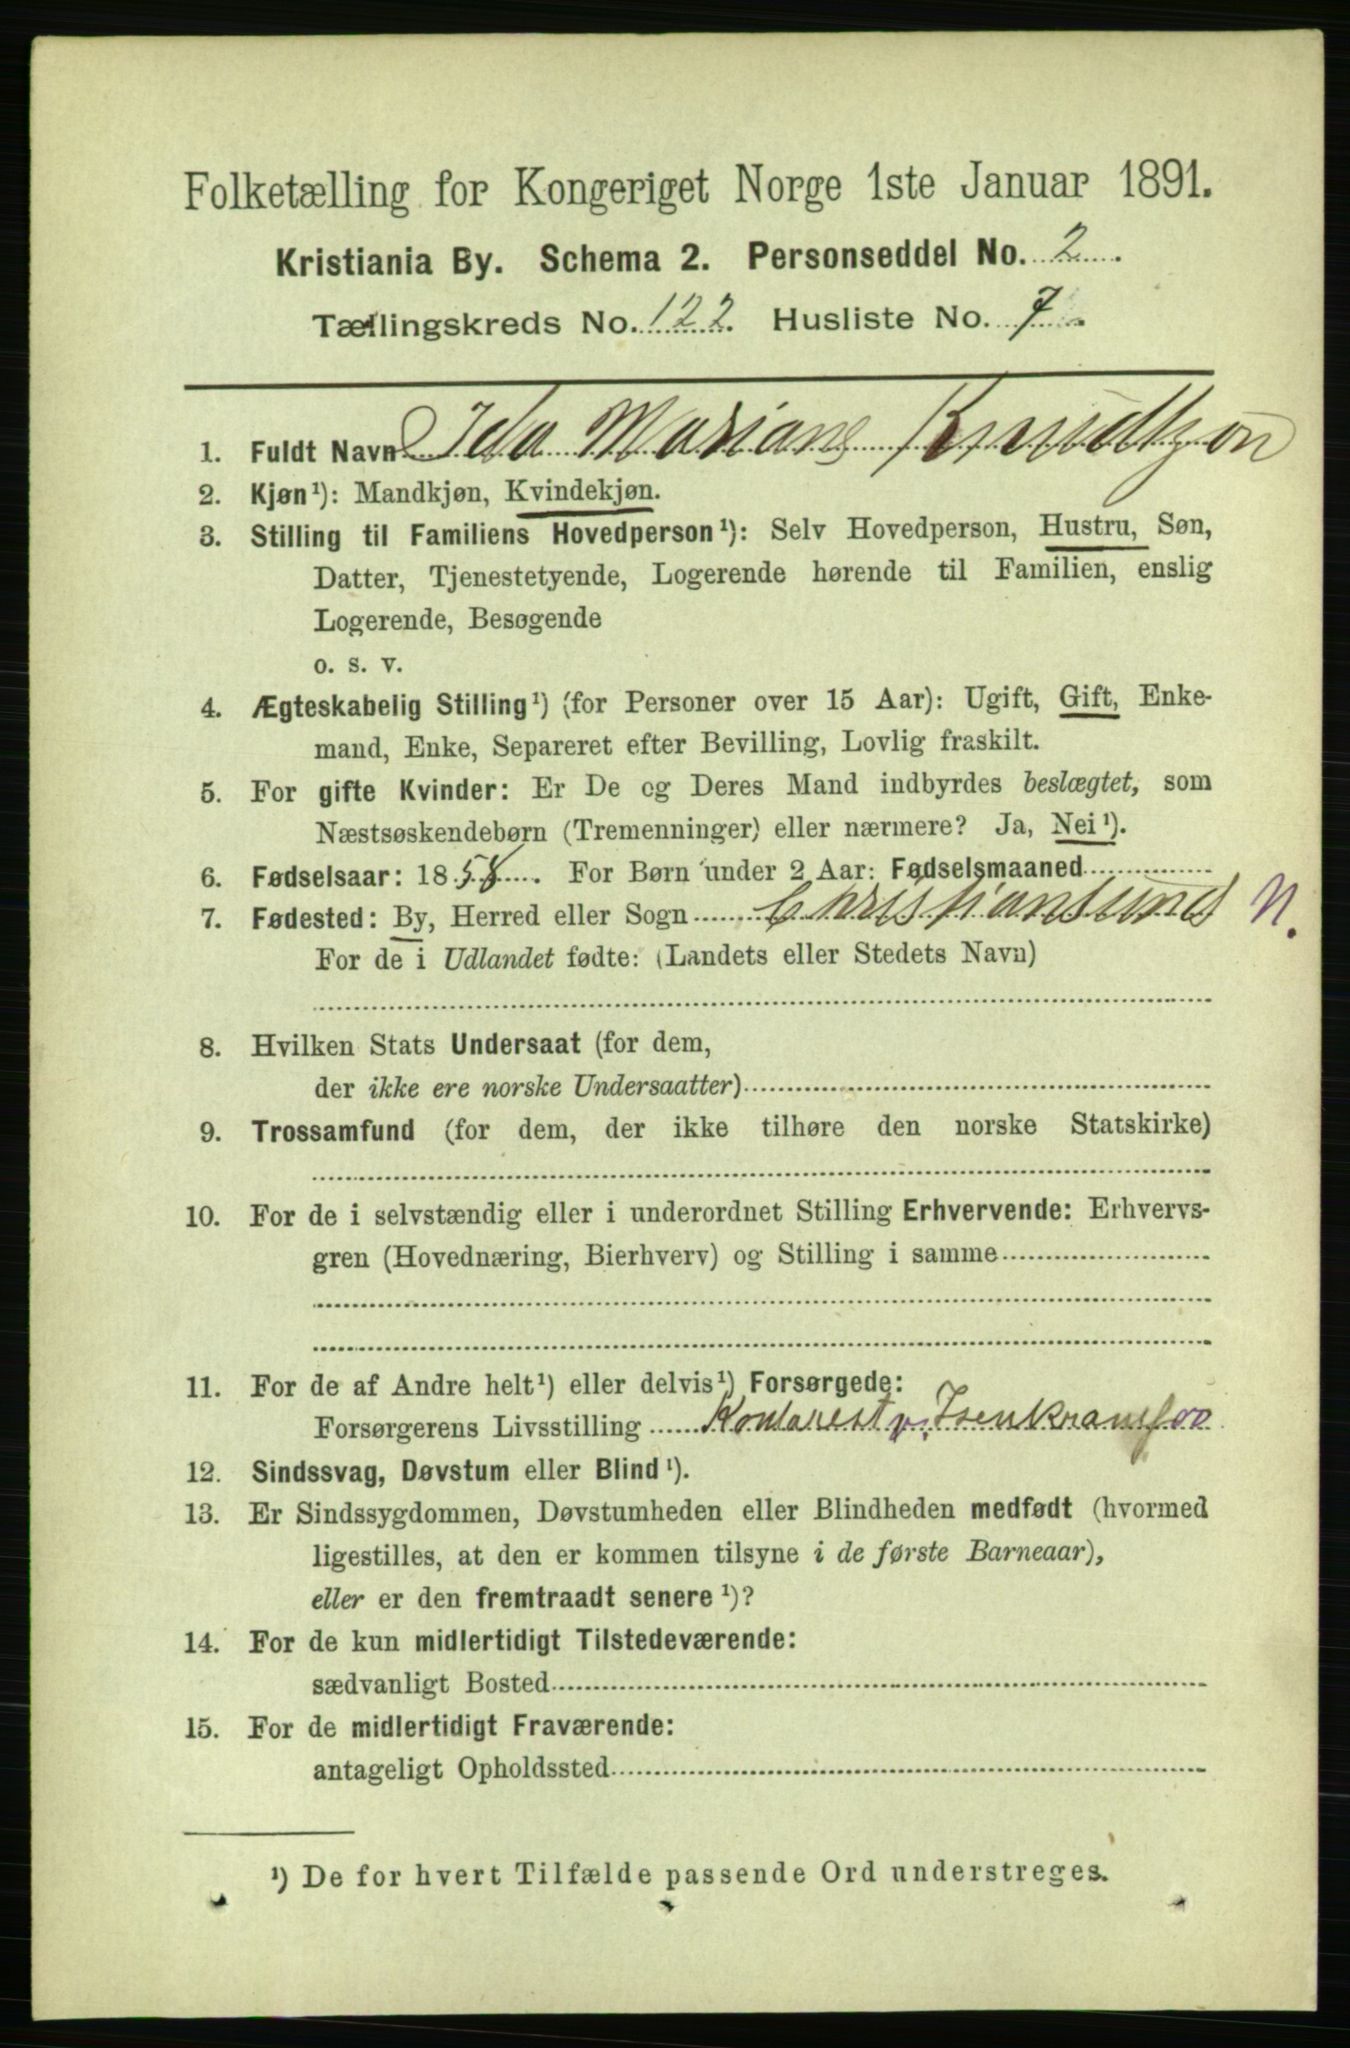 Folketælling for Kongeriget Norge 1ste Januar 1891.
Kristiania By. Schema 2. Personseddel No. 2.
Tællingskreds No. 122. Husliste No. 7.
1. Fuldt Navn Ida Mariane Knudtzon
2. Kjøn¹): Mandkjøn, Kvindekjøn.
3. Stilling til Familiens Hovedperson¹): Selv Hovedperson, Hustru, Søn,
Datter, Tjenestetyende, Logerende hørende til Familien, enslig
Logerende, Besøgende
o. s. v.
4. Ægteskabelig Stilling¹) (for Personer over 15 Aar): Ugift, Gift, Enke-
mand, Enke, Separeret efter Bevilling, Lovlig fraskilt.
5. For gifte Kvinder: Er De og Deres Mand indbyrdes beslægtet, som
Næstsøskendebørn (Tremenninger) eller nærmere? Ja, Nei¹).
6. Fødselsaar: 1858. For Børn under 2 Aar: Fødselsmaaned
7. Fødested: By, Herred eller Sogn Christiansund N.
For de i Udlandet fødte: (Landets eller Stedets Navn)
8. Hvilken Stats Undersaat (for dem,
der ikke ere norske Undersaatter)
9. Trossamfund (for dem, der ikke tilhøre den norske Statskirke)
10. For de i selvstændig eller i underordnet Stilling Erhvervende: Erhvervs-
gren (Hovednæring, Bierhverv) og Stilling i samme
11. For de af Andre helt¹) eller delvis¹) Forsørgede:
Forsørgerens Livsstilling Kontorist p.
12. Sindssvag, Døvstum eller Blind¹).
13. Er Sindssygdommen, Døvstumheden eller Blindheden medfødt (hvormed
ligestilles, at den er kommen tilsyne i de første Barneaar),
eller er den fremtraadt senere¹)?
14. For de kun midlertidigt Tilstedeværende:
sædvanligt Bosted
15. For de midlertidigt Fraværende:
antageligt Opholdssted
¹) De for hvert Tilfælde passende Ord understreges.